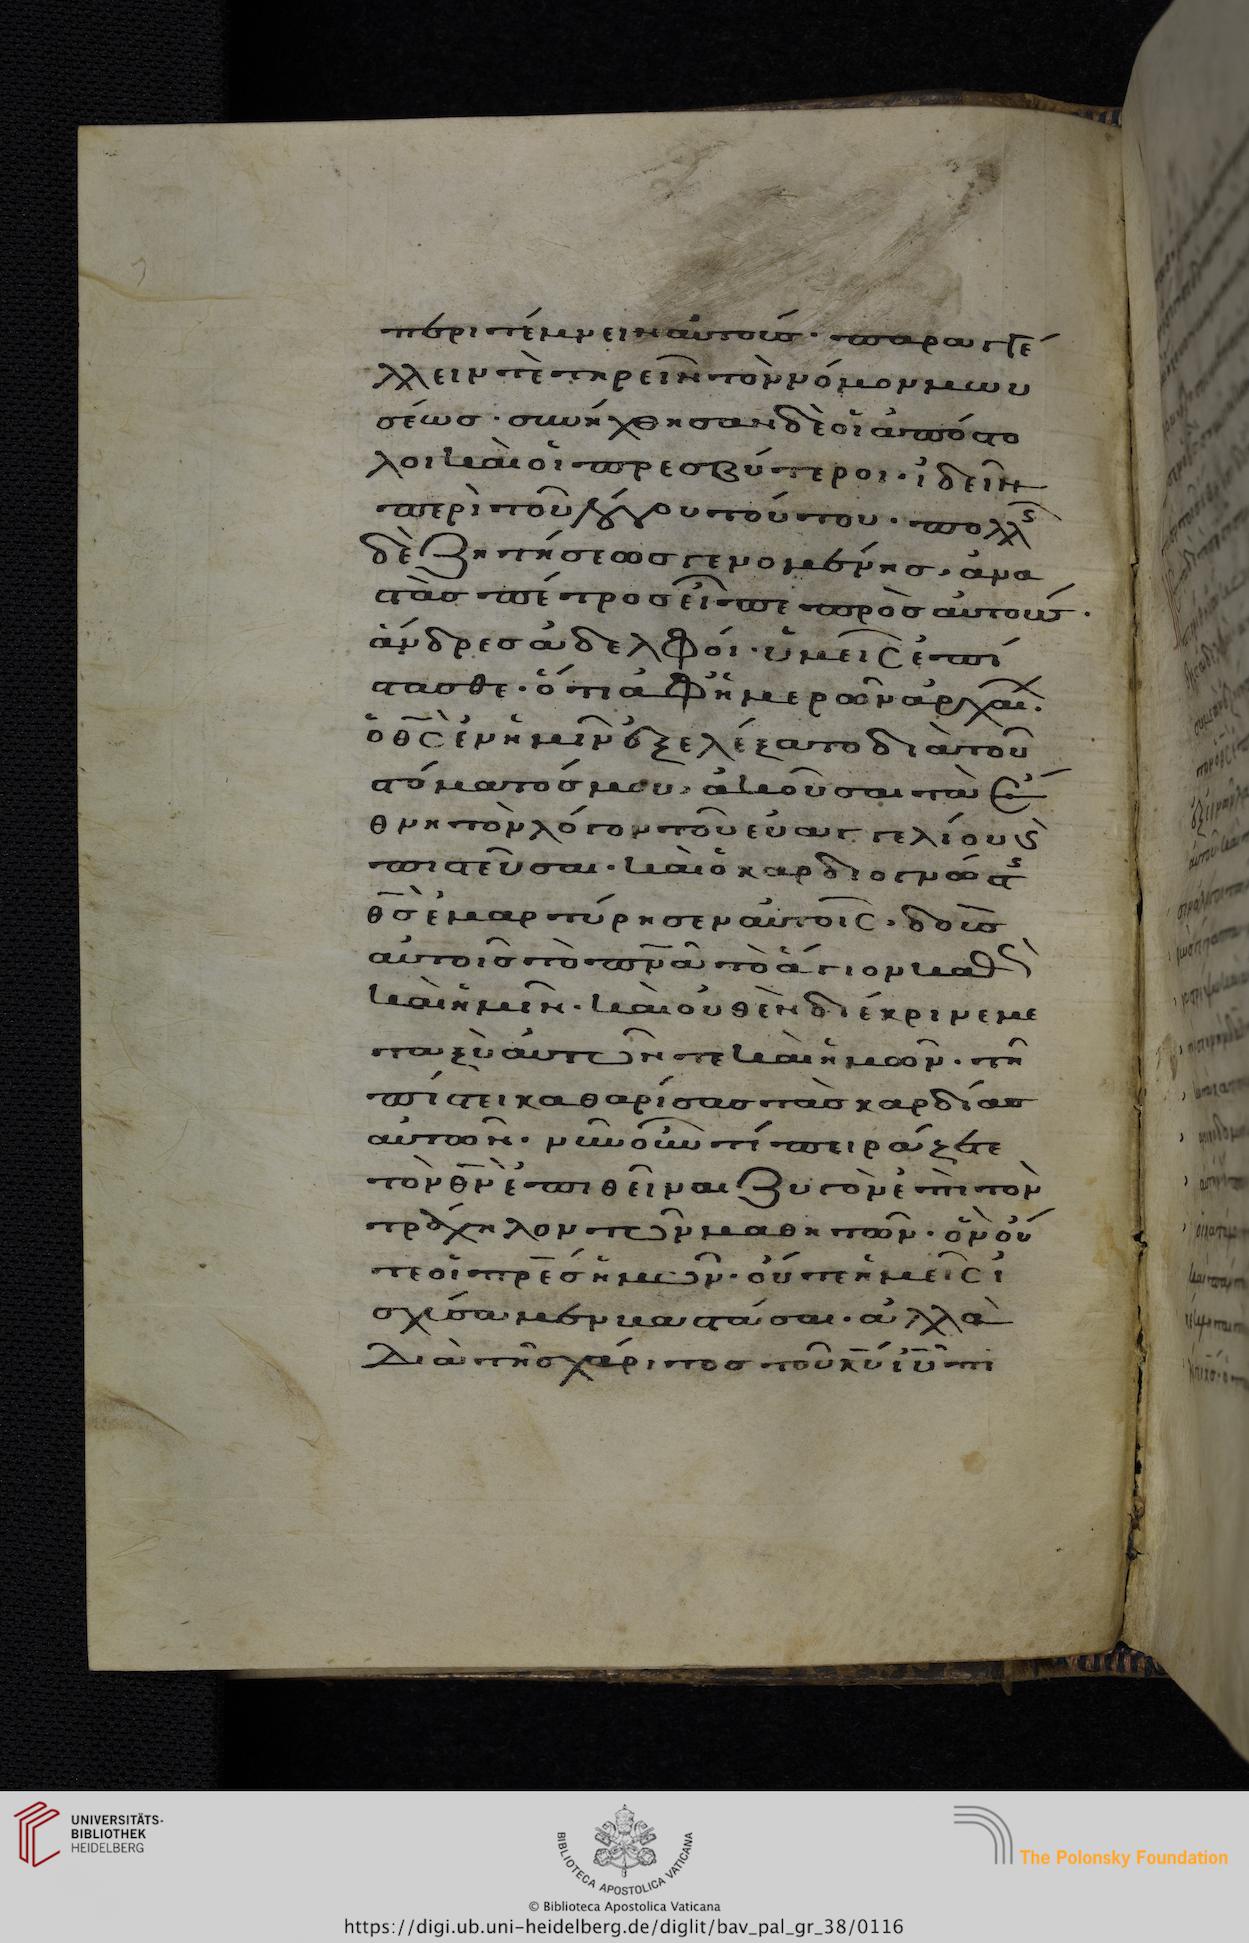 περιτέμνειν αὐτούς· παραγγέ
λλειν τὲ τηρεῖν τὸν νόμον μωυ
σέως· συνήχθησαν δὲ οἱ ἀπόστο
λοι καὶ οἱ πρεσβύτεροι· ἰδεῖν
περὶ τοῦ λόγου τούτου· πολλῆς
δὲ ζητήσεως γενομένης, ἀνα
στὰς πέτρος εἶπε πρὸς αὐτούς·
ἄνδρες ἀδελφοί· ὑμεῖς ἐπί
στασθε· ὅτι ἀφ ἡμερῶν ἀρχαι.
ὁ θς ἐν ἡμῖν ἐξελέξατο διὰ τοῦ
στόματός μου, ἀκοῦσαι τὰ ἔ
θνη τὸν λόγον τοῦ εὐαγγελίου καὶ
πιστεῦσαι· καὶ ὁ καρδιογνώστης
θς ἐμαρτύρησεν αὐτοῖς· δοὺς
αὐτοῖς τὸ πνα τὸ ἅγιον καθὼς
καὶ ἡμῖν· καὶ οὐθὲν διέκρινε με
ταξὺ αὐτῶν τε καὶ ἡμῶν· τῆ
πίστει καθαρίσας τὰς καρδίας
αὐτῶν· νῦν οὖν τί πειράζετε
τὸν θν ἐπιθεῖναι ζυγὸν ἐπὶ τὸν
τράχηλον τῶν μαθητῶν· ὃν οὔ
τε οἱ πρες ἡμῶν· οὔτε ἡμεῖς ἰ
σχύσαμεν βαστάσαι· ἀλλὰ
διὰ τῆς χάριτος τοῦ κυ ιυ πι
UNIVERSITÄTS-
BIBLIOTHEK
HEIDELBERG
BIBLIOTECA APOSTOLICA VATICANA
The Polonsky Foundation
© Biblioteca Apostolica Vaticana
https://digi.ub.uni-heidelberg.de/diglit/bav_pal_gr_38/0116